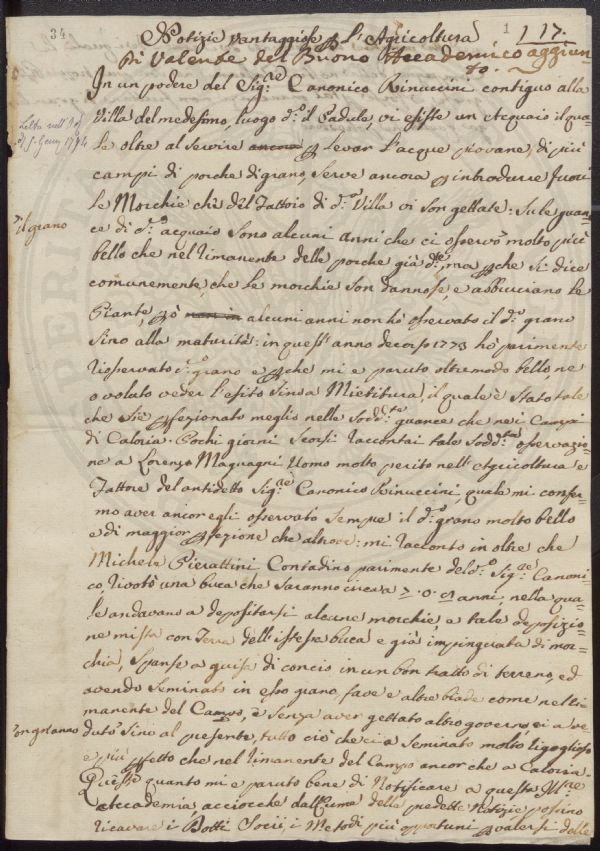 34
1
117.
Notizie vantaggiose p l'Agricoltura
Di Valente del Buono Accademico aggiun=
to.
In un podere del Sig.re Canonico Rinuccini contiguo alla
Villa del medesimo, luogo d.o il Padule, vi esiste un Acquaio il qua=
le oltre al servire p levar l'acque piovane, di più
campi di porche di grano, serve ancora p introdurre fuori
le Morchie che del Fattoio di d.a Villa vi son gettate: Sule guan=
ce di d.o acquaio sono alcuni anni che ci osservo molto più
bello che nel rimanente delle porche già d.te, ma pche si dice
comunemente, che le morchie son dannose, e abbruciano le
Piante, pò alcuni anni non hò osservato il d.o grano
sino alla maturità: in quest'anno decorso 1773 hò parimente
riosservato grano e pche mi è paruto oltremodo bello, ne
ò volato veder l'esito sino a Mietitura, il quale è stato tale
che si è pfezionato meglio nelle sodd.te guance che nei Campi
di Caloria. Pochi giorni scorsi raccontai tale sodd.ta osservazio=
ne a Lorenzo Magnagni Uomo molto perito nell'Agricoltura e
Fattore del antidetto Sig.re Canonico Rinuccini, quale mi confer=
mo aver ancor egli osservato sempre il d.o grano molto bello
e di maggior pfezione che altrove: mi racconto in oltre che
Michele Pierattini Contadino parimente del d.o Sig.re Canoni=
co, rivotò una buca che saranno circa a 7. o 8 anni, nella qua=
le andavano a depositarsi alcune morchie, a tale deposizio=
ne mista con Terra dell'istessa buca e già impinguata di mor=
chia, sparse a guisa di concio in un bon tratto di terreno, ed
avendo seminato in esso grano, fave e altre biade come nel ri=
manente del Campo, e senza aver gettato altro governo, si è ve
duto sino al presente, tutto ciò che ci à seminato molto rigoglioso
e più pfetto che nel rimanente del Campo ancor che a Caloria.
Questo è quanto mi è paruto bene di Notificare a questa Ill.re
Accademia, acciocche dall'esame della predette Notizie, possino
ricavare i Dotti Socii, i Metodi più opportuni p valersi delle
Letta nell'Ad.
5. Genn. 1774
il grano